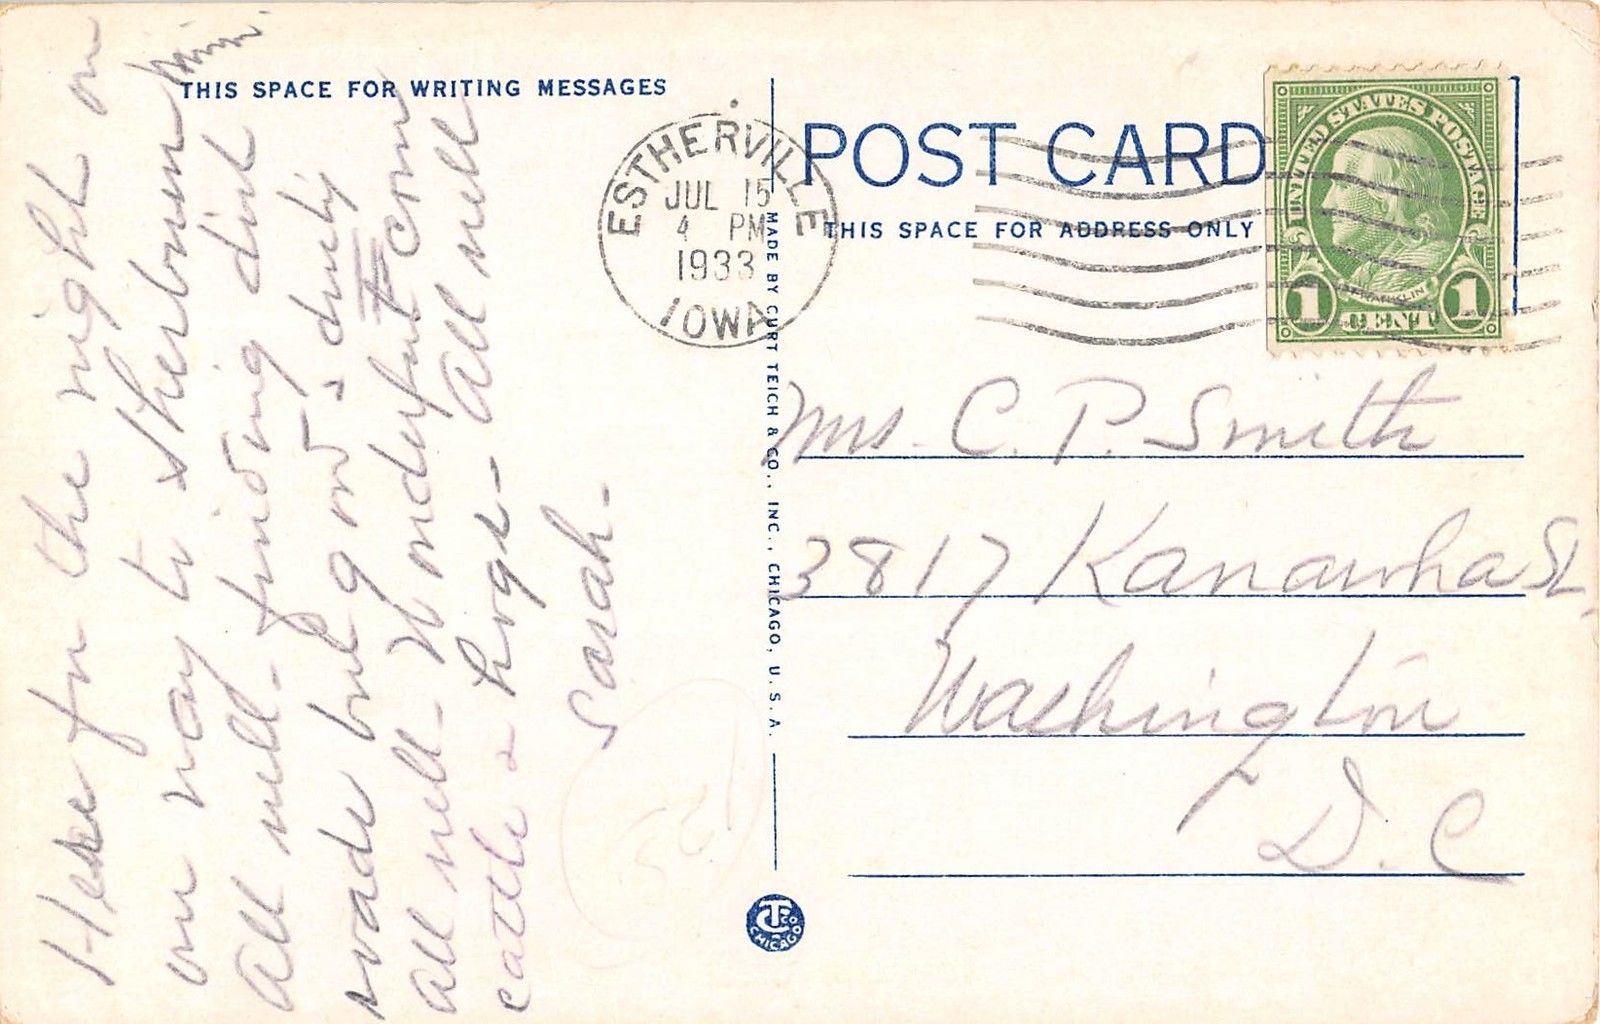 THIS SPACE FOR WRITING MESSAGES
Here for the night on
our way to Sherbourn Minn.
All well. finding dirt
roads but good & dusty
all well. Wonderful corn
cattle & hogs - All well
Sarah.
ESTHERVILLE
JUL 15
4 PM
1933
IOWA
MADE BY CURT TEICH & CO., INC., CHICAGO, U. S. A.
CT CO
CHICAGO
POST CARD
THIS SPACE FOR ADDRESS ONLY
UNITED STATES POSTAGE
FRANKLIN
1 CENT 1
Mrs. C. P. Smith
3817 Kanawha St,
Washington
D. C